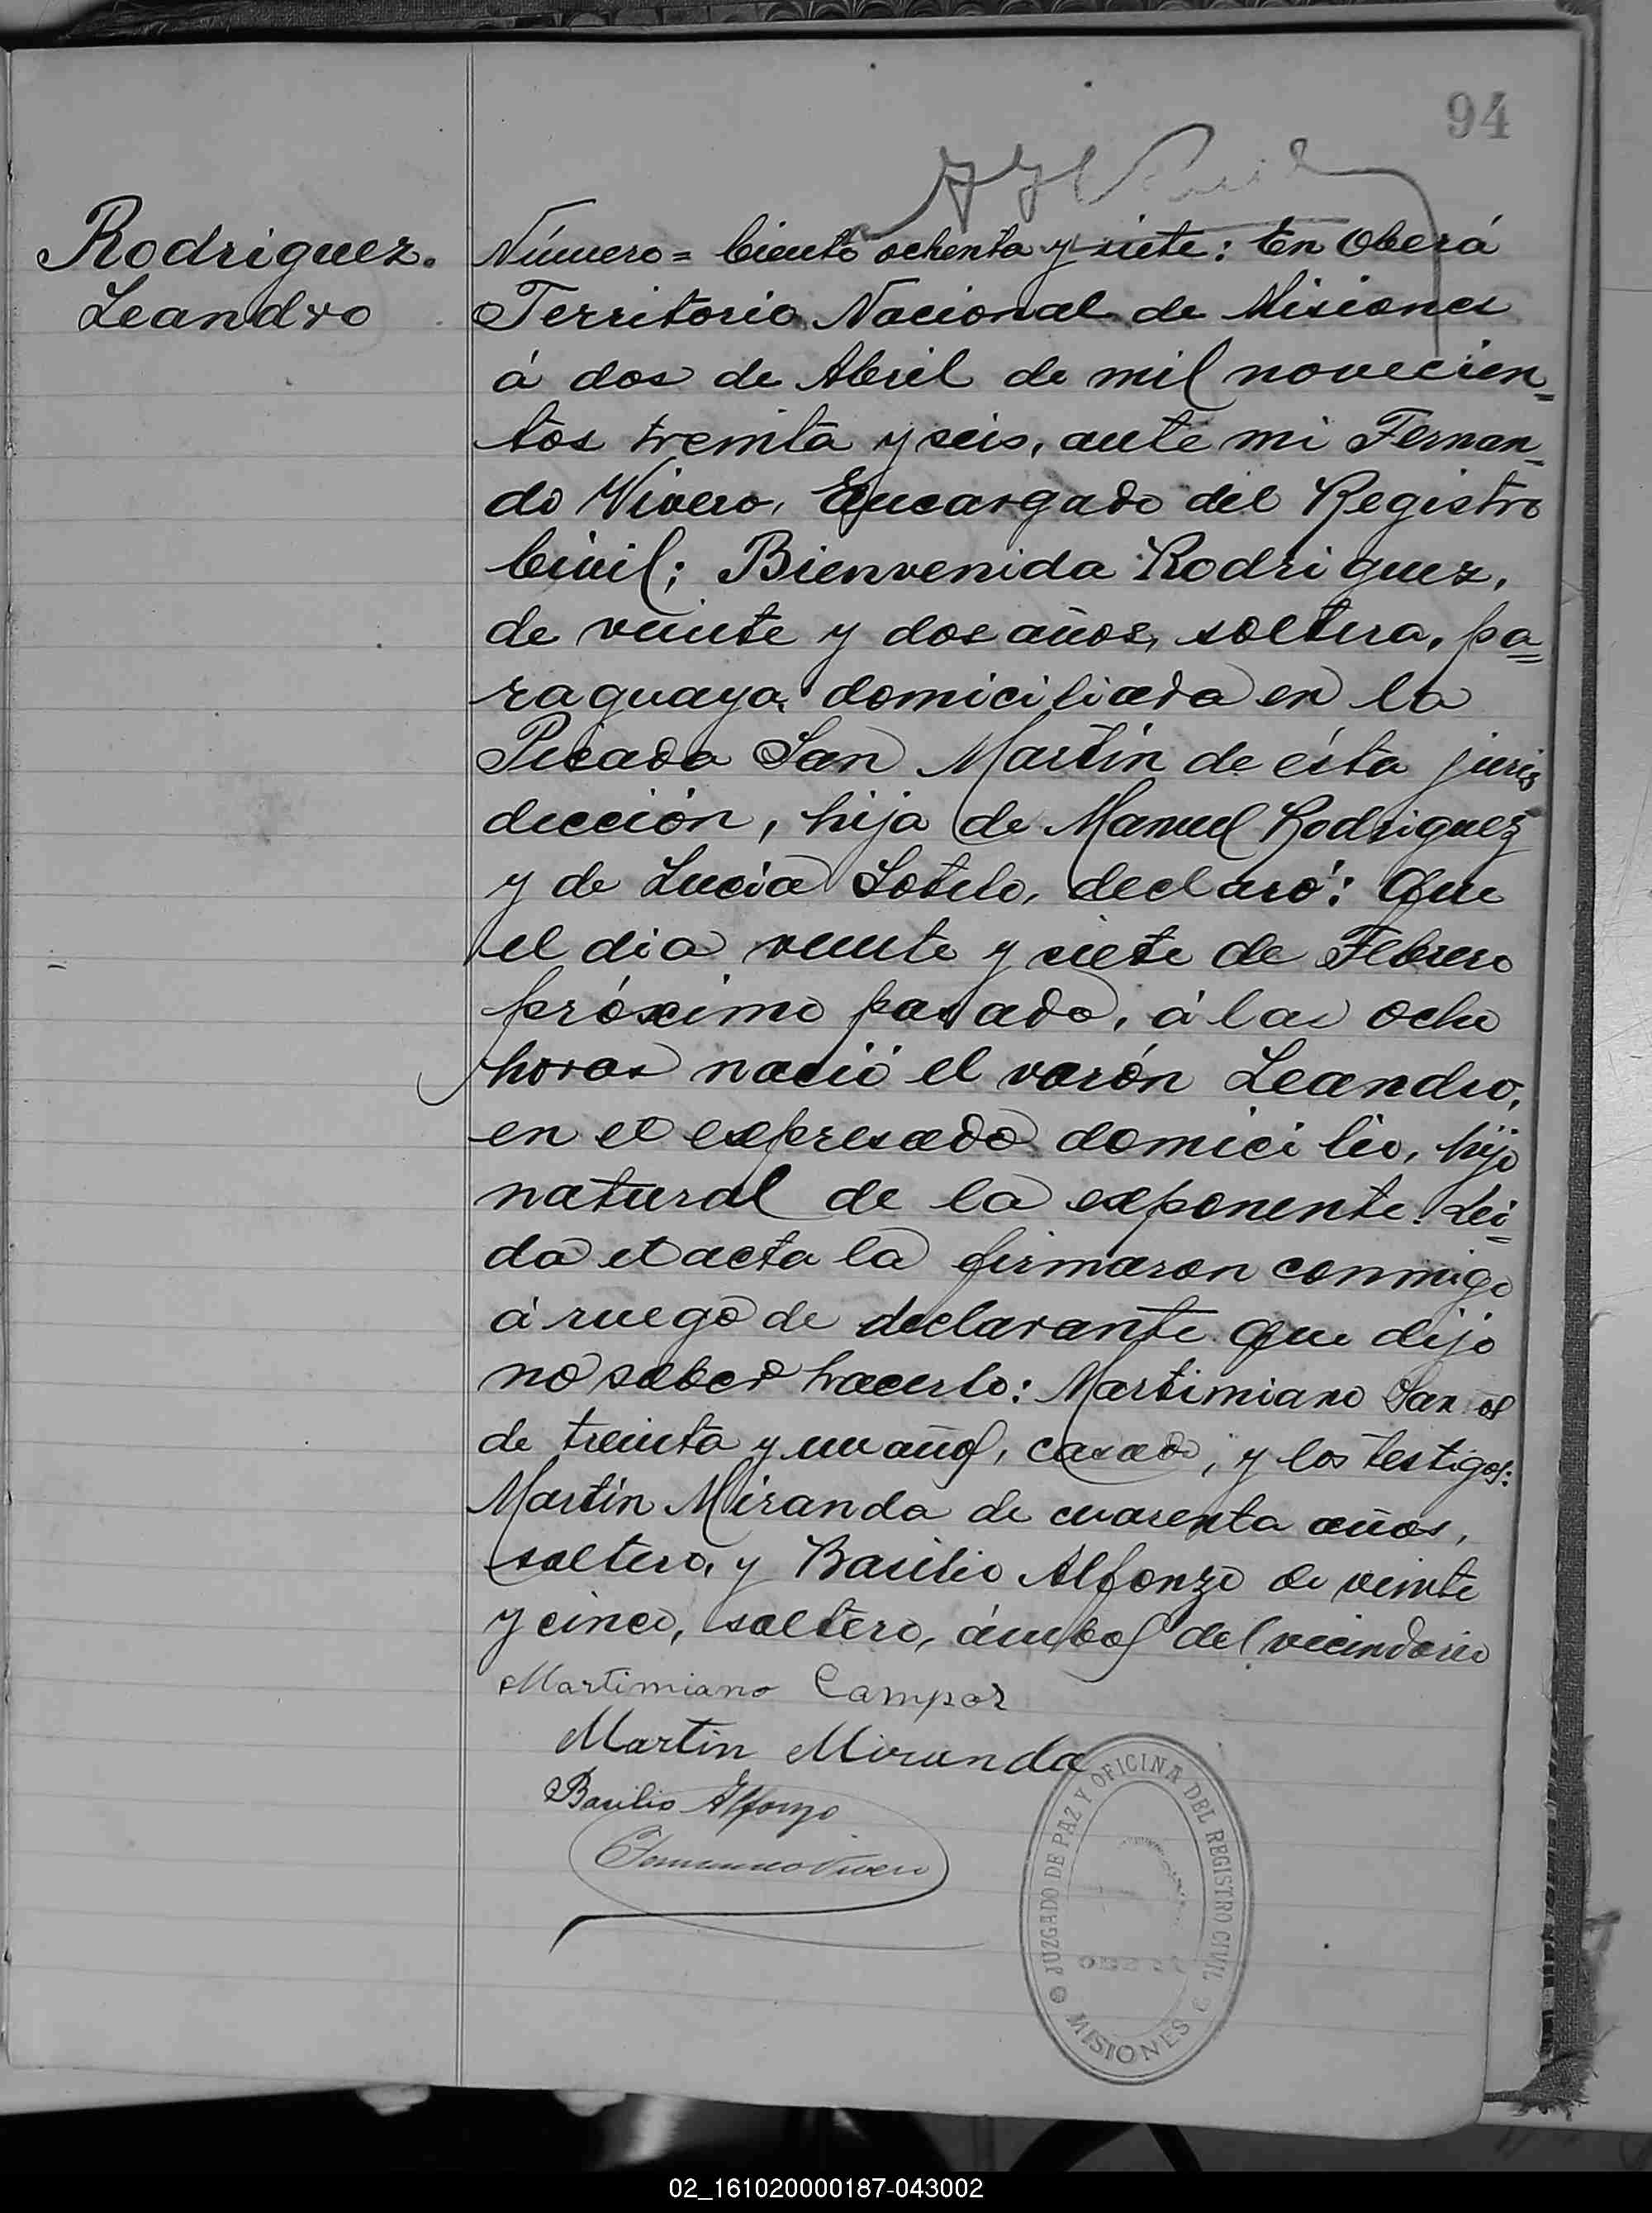 94
Rodriguez.
Leandro
Número = Ciento ochenta y siete: En Oberá
Territorio Nacional de Misiones
á dos de Abril de mil novecien=
tos treinta y seis, ante mi Fernan=
do Vivero, Encargado del Registro
Civil; Bienvenida Rodriguez,
de veinte y dos años, soltera, pa=
raguaya, domiciliada en la
Picada San Martín de ésta juris
dicción, hija de Manuel Rodriguez
y de Lucia Sotelo, declaró: Que
el dia veinte y siete de Febrero
próximo pasado, á las ocho
horas nació el varón Leandro,
en el expresado domicilio, hijo
natural de la exponente. Lei=
da el acta la firmaron conmigo
á ruego de declarante que dijo
no saber hacerlo: Martimiano
de treinta y un años, casado, y los testigos:
Martin Miranda de cuarenta años,
soltero, y Basilio Alfonzo de veinte
y cinco, soltero, ámbos del vecindario
Martimiano Campos
Martin Miranda
Basilio Alfonzo
Fernando Vivero
JUZGADO DE PAZ Y OFICINA DEL REGISTRO CIVIL
MISIONES
02_161020000187-043002